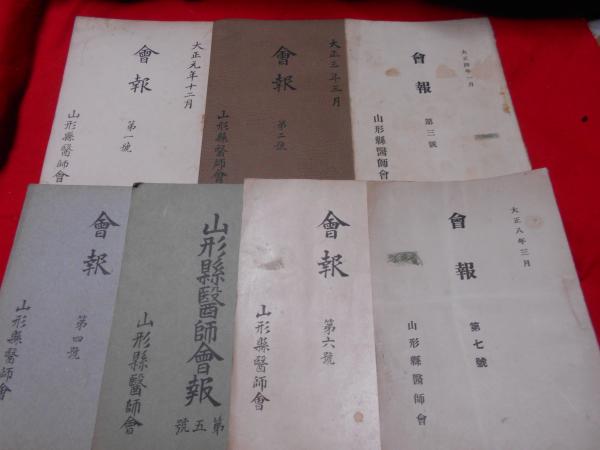 大正元年十二月
會報
第一號
山形縣醫師會
大正三年三月
會報
第二號
山形縣醫師會
大正四年一月
會報
第三號
山形縣醫師會
會報
第四號
山形縣醫師會
山形縣醫師會報
第五號
山形縣醫師會
會報
第六號
山形縣醫師會
大正八年三月
會報
第七號
山形縣醫師會